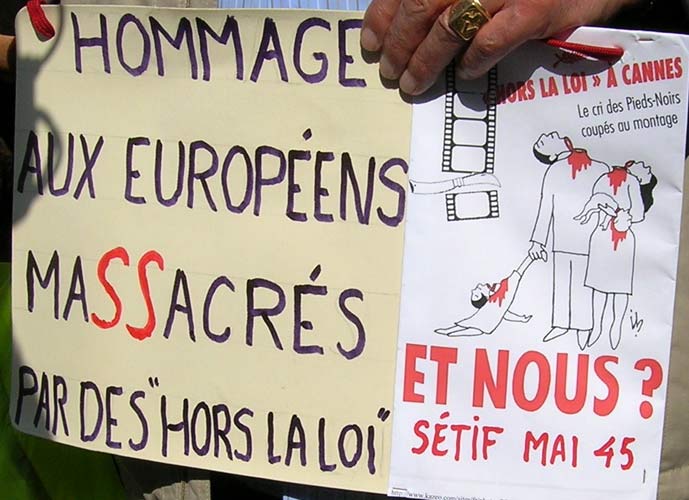 HOMMAGE
AUX EUROPÉENS
MASSACRÉS
PAR DES "HORS LA LOI"
"HORS LA LOI » A CANNES
Le cri des Pieds-Noirs
coupés au montage
ET NOUS ?
SÉTIF MAI 45